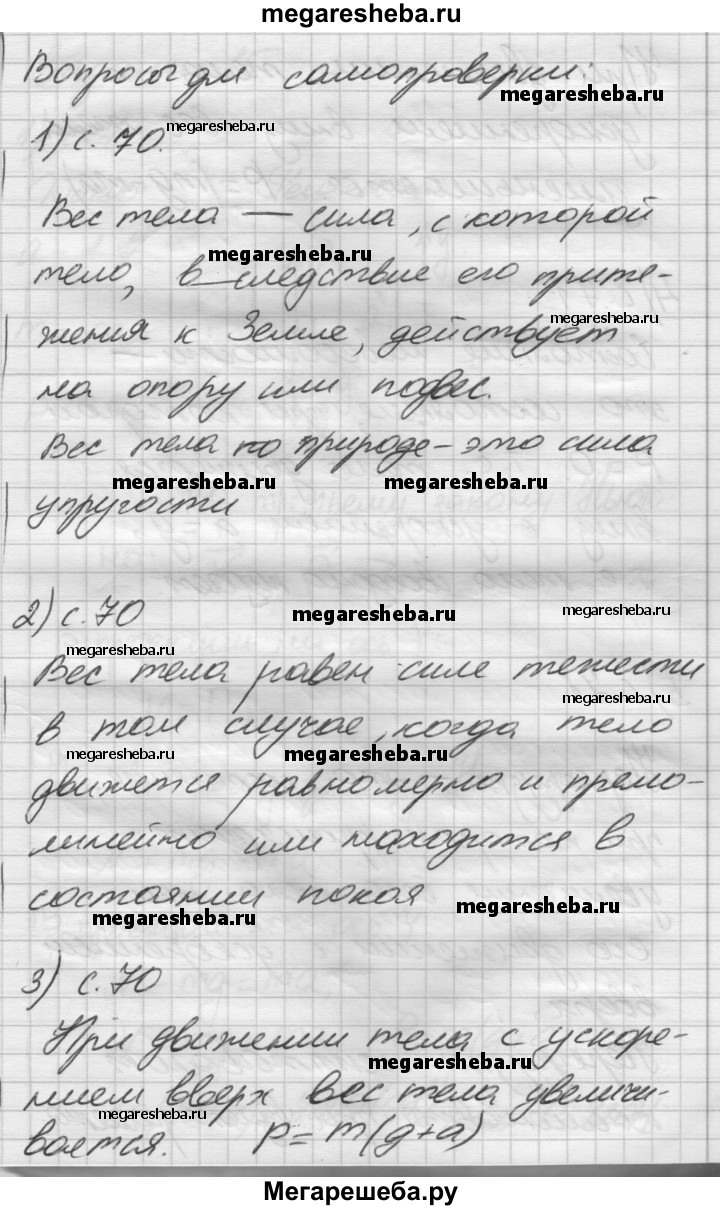 megaresheba.ru
Вопросы для самопроверки:
megaresheba.ru
1) с. 70.
megaresheba.ru
Вес тела — сила, с которой
megaresheba.ru
тело, вследствие его притя-
megaresheba.ru
жения к Земле, действует
на опору или подвес.
Вес тела по природе - это сила
megaresheba.ru megaresheba.ru
упругости
2) с. 70
megaresheba.ru megaresheba.ru
megaresheba.ru
Вес тела равен силе тяжести
megaresheba.ru
в том случае, когда тело
megaresheba.ru megaresheba.ru
движется равномерно и прямо-
линейно или находится в
состоянии покоя
megaresheba.ru megaresheba.ru
3) с. 70
При движении тела с ускоре-
megaresheba.ru
нием вверх вес тела увеличи-
megaresheba.ru
вается. P = m(g+a)
Мегарешеба.ру